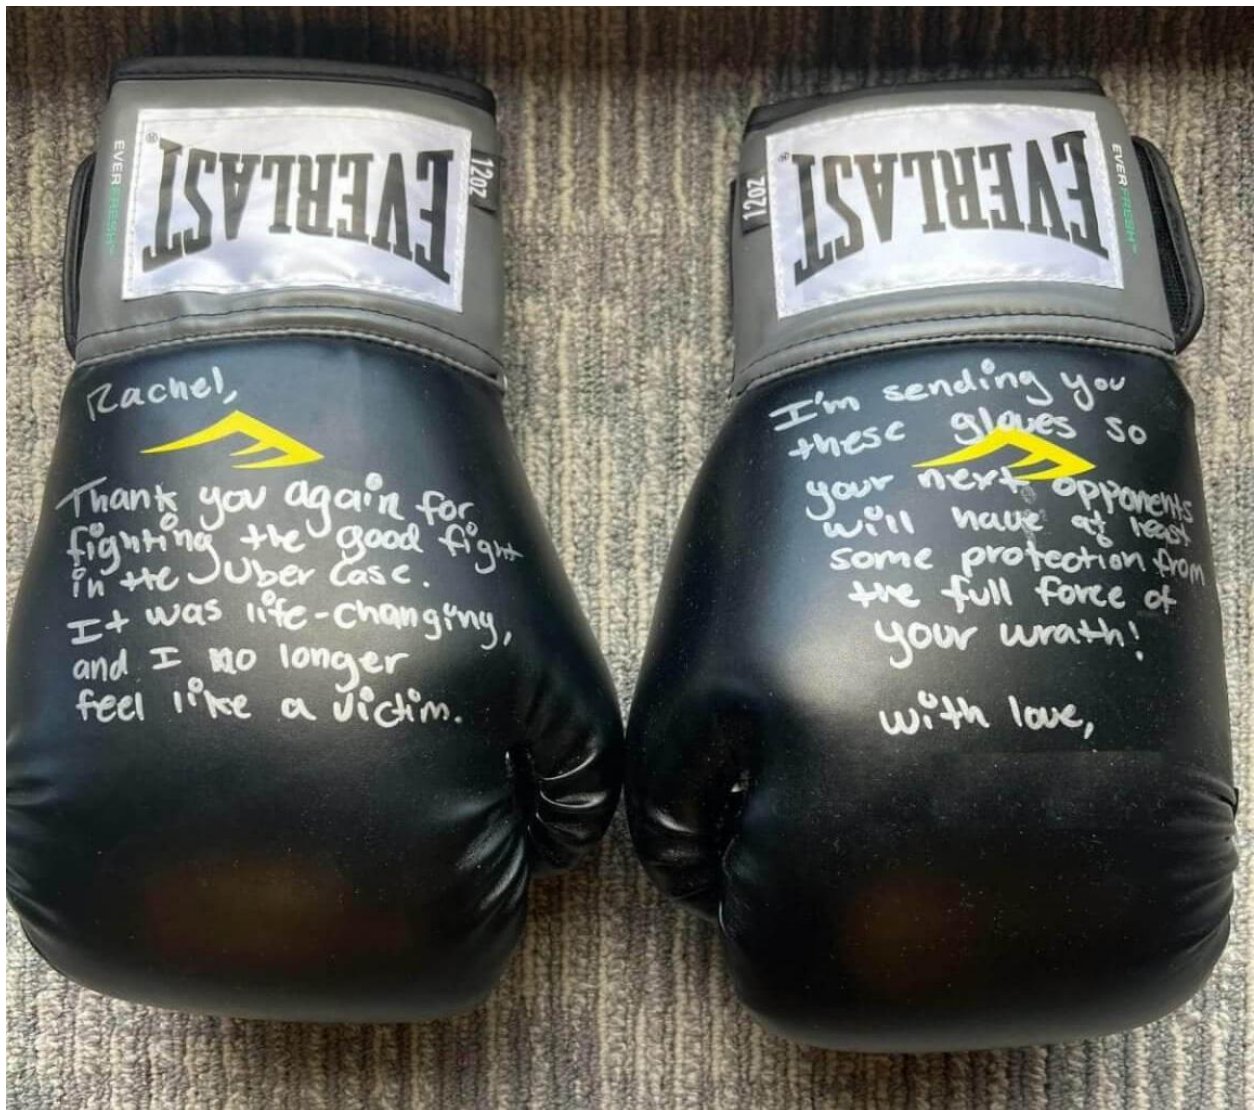 EVERLAST
®
12oz
EVERFRESH™
Rachel,
Thank you again for
fighting the good fight
in the Uber case.
It was life-changing,
and I no longer
feel like a victim.
EVERLAST
®
12oz
EVERFRESH™
I'm sending you
these gloves so
your next opponents
will have at least
some protection from
the full force of
your wrath!
with love,